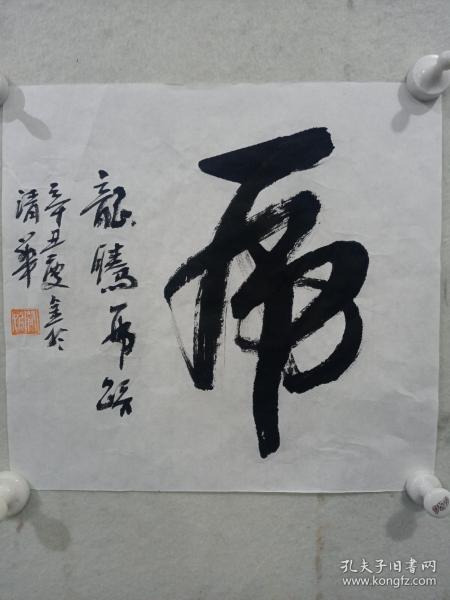 虎
龍騰虎躍
辛丑夏
清華
孔夫子旧书网
www.kongfz.com